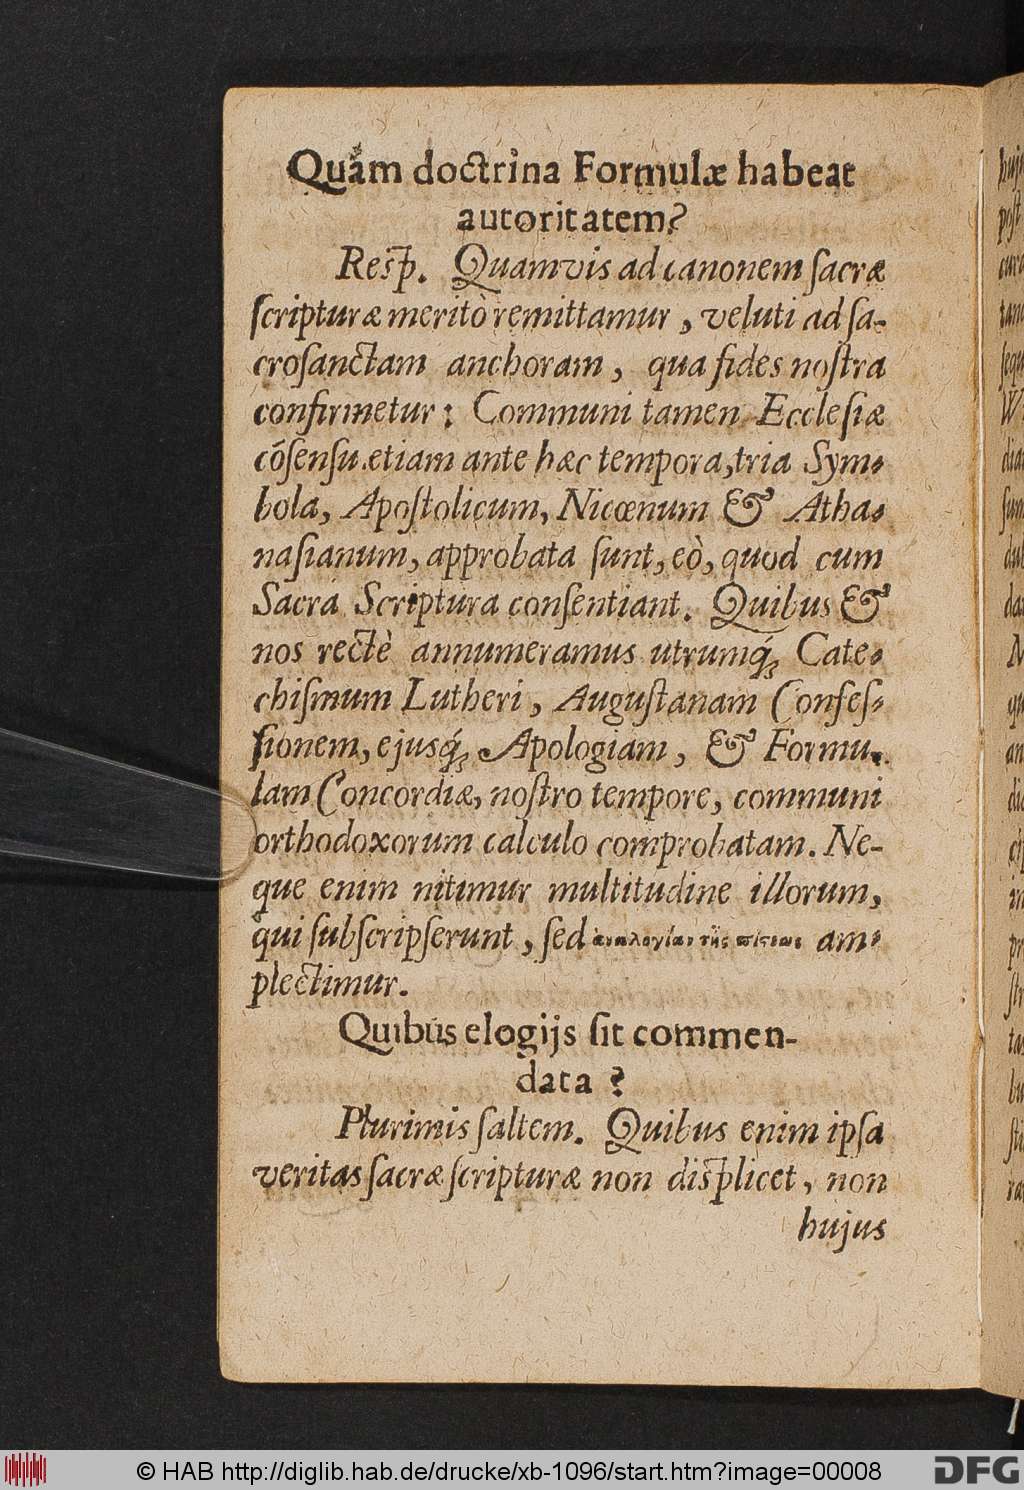 Quàm doctrina Formulæ habeat
autoritatem?
Resp. Quamvis ad canonem sacræ
scripturæ meritò remittamur, veluti ad sa-
crosanctam anchoram, qua fides nostra
confirmetur: Communi tamen Ecclesiæ
cõsensu etiam ante hæc tempora, tria Sym-
bola, Apostolicum, Nicœnum & Atha-
nasianum, approbata sunt, eò, quod cum
Sacra Scriptura consentiant. Quibus &
nos rectè annumeramus utrumq́; Cate-
chismum Lutheri, Augustanam Confes-
sionem, ejusq́; Apologiam, & Formu-
lam Concordiæ, nostro tempore, communi
orthodoxorum calculo comprobatam. Ne-
que enim nitimur multitudine illorum,
qui subscripserunt, sed ἀναλογίαν τῆς πίςεως am-
plectimur.
Quibus elogijs sit commen-
data?
Plurimis saltem. Quibus enim ipsa
veritas sacræ scripturæ non displicet, non
hujus
© HAB http://diglib.hab.de/drucke/xb-1096/start.htm?image=00008
DFG